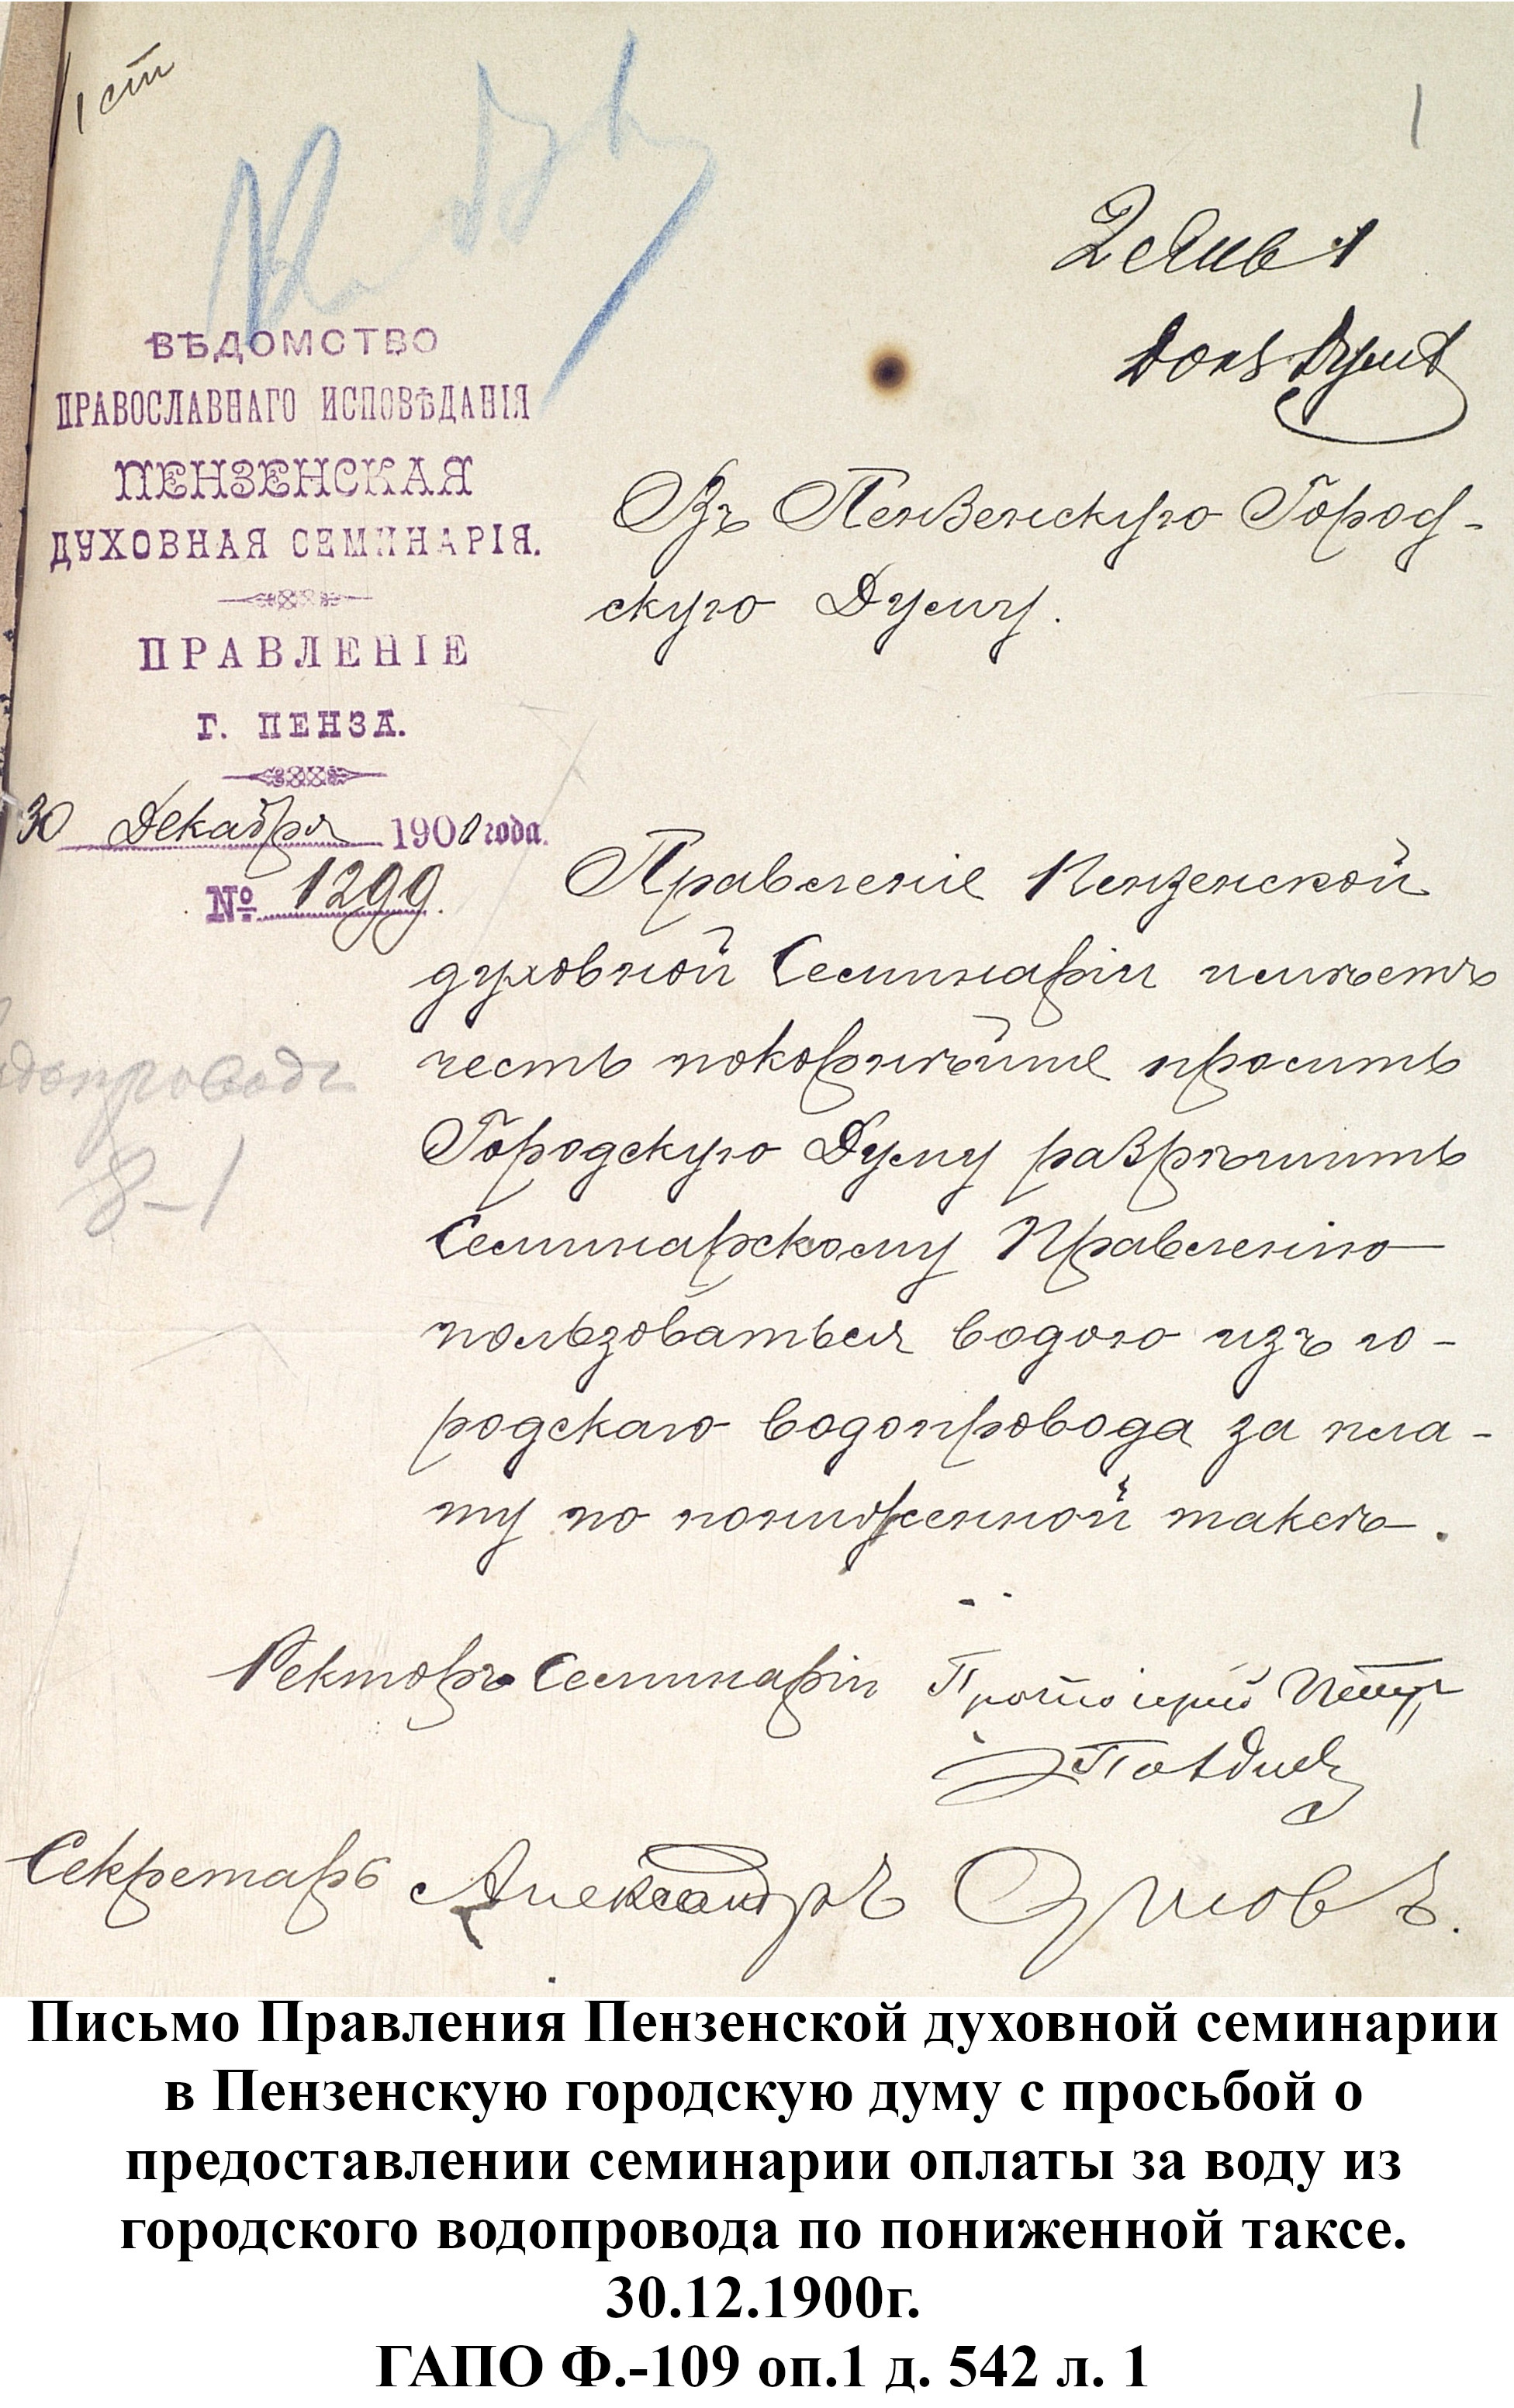 1 ст
1
2 Янв 1
Долж Думѣ
ВѢДОМСТВО
ПРАВОСЛАВНАГО ИСПОВѢДАНІЯ
ПЕНЗЕНСКАЯ
ДУХОВНАЯ СЕМИНАРІЯ.
ПРАВЛЕНІЕ
Г. ПЕНЗА.
30 Декабря 1900 года.
№ 1299.
Въ Пензенскую Город-
скую Думу.
Правленіе Пензенской
духовной Семинаріи имѣетъ
честь покорнѣйше просить
Городскую Думу разрѣшить
Семинарскому Правленію
пользоваться водою изъ го-
родскаго водопровода за пла-
ту по пониженной таксѣ.
водопроводъ
8-1
Ректоръ Семинаріи Протоіерей Петръ
Позднев
Секретарь Александръ
Письмо Правления Пензенской духовной семинарии
в Пензенскую городскую думу с просьбой о
предоставлении семинарии оплаты за воду из
городского водопровода по пониженной таксе.
30.12.1900г.
ГАПО Ф.-109 оп.1 д. 542 л. 1